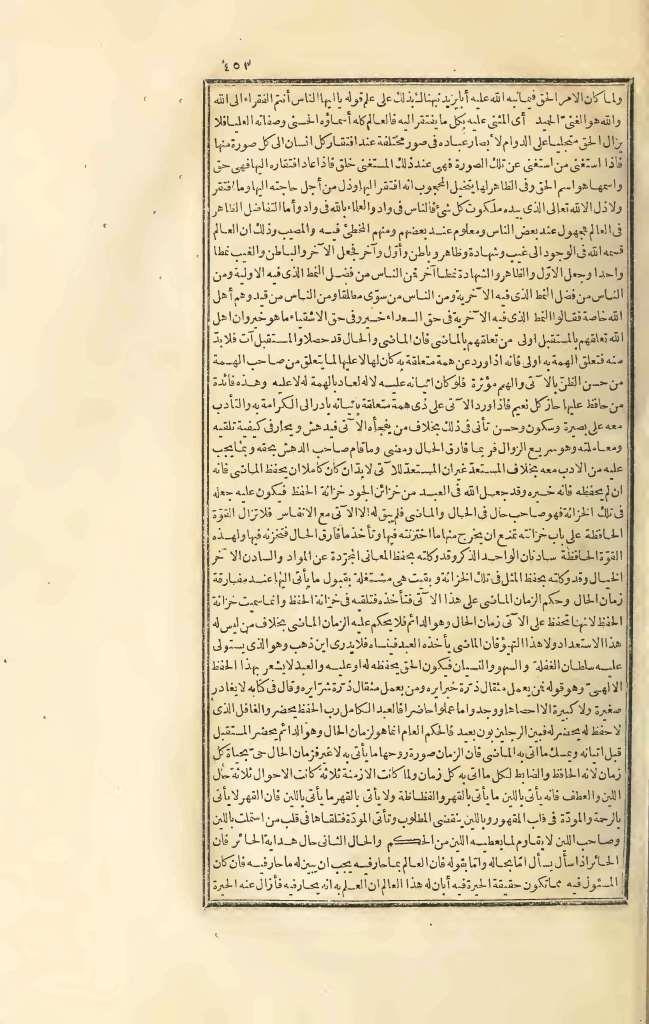 ٤٥٣
ولما كان الامر الحق فيما نبه الله عليه أبا يزيد تنبهنا لك بذلك على علم قوله يا ايها الناس أنتم الفقراء الى الله
والله هو الغنى الحميد أى المثنى عليه بكل ما يفتقر اليه فالعالم كله أسماؤه الحسنى وصفاته العليا فلا
يزال الحق متجليا على الدوام لأبصار عباده فى صور مختلفة عند افتقار كل انسان الى كل صورة منها
فاذا استغنى من استغنى عن تلك الصورة فهى عند ذلك المستغنى خلق فاذا عاد افتقاره اليها فهى حق
واسمها هو اسم الحق وفى الظاهر لها يتخيل المحجوب انه افتقر اليها وذل من أجل حاجته اليها وما افتقر
ولا ذل الا لله تعالى الذى بيده ملكوت كل شئ فالناس فى واد والعلماء بالله فى واد وأما التفاضل الظاهر
فى العالم فمجهول عند بعض الناس ومعلوم عند بعضهم ومنهم المخطئ فيه والمصيب وذلك ان العالم
قسمه الله فى الوجود الى غيب وشهادة وظاهر وباطن وأول وآخر فجعل الآخر والباطن والغيب نمطا
واحدا وجعل الاول والظاهر والشهادة نمطا آخر فمن الناس من فضل النمط الذى فيه الاولية ومن
الناس من فضل النمط الذى فيه الآخرية ومن الناس من سوّى مطلقا ومن الناس من قيد وهم أهل
الله خاصة فقالوا النمط الذى فيه الآخرية فى حق السعداء خير وفى حق الاشقياء ما هو خير وان اهل
الله تعلقهم بالمستقبل اولى من تعلقهم بالماضى فان الماضى والحال قد حصلا والمستقبل آت فلا بدّ
منه فتعلق الهمة به اولى فانه اذا ورد عن همة متعلقة به كان لها لا عليها واذا ورد عن غير همة متعلق من صاحب الهمة
من حسن الظن بالآتى والهمم مؤثرة فلو كان اتيانه عليه لا له لعاد بالهمة له لا عليه وهذه فائدة
من حافظ عليها حاز كل نعيم فاذا ورد الآتى على ذى همة متعلقة باتيانه بادر الى الكرامة به والتأدب
معه على بصيرة وسكون وحسن تأنى فى ذلك بخلاف من يفجأه الآتى فيدهش ويحار فى كيفية تلقيه
ومعاملته وهو سريع الزوال فربما فارق الحال ومضى وما قام صاحب الدهش بحقه وبما يجب
عليه من الادب معه بخلاف المستعدّ غير ان المستعدّ للآتى لا بدّ ان كان كاملا ان يحفظ الماضى فانه
ان لم يحفظه فاته خيره وقد جعل الله فى العبد من خزائن الجود خزانة الحفظ فيكون عليه جعله
فى تلك الخزانة فهو صاحب حال فى الحال والماضى فلم يبق له الا الآتى مع الانفاس فلا تزال القوّة
الحافظة على باب خزانته تمنع ان يخرج منها ما اختزنته فيها وتأخذ ما فارق الحال فتخزنه فيها ولهذه
القوّة الحافظة سادنان الواحد الذكر وقد وكلته بحفظ المعانى المجرّدة عن المواد والسادن الآخر
الخيال وقد وكلته بحفظ المثل فى تلك الخزانة وبقيت هى مشتغلة بقبول ما يأتى اليها عند مفارقة
زمان الحال وحكم الزمان الماضى على هذا الآتى فتأخذه فتلقيه فى خزانة الحفظ وانما سميت خزانة
الحفظ لانها تحفظ على الآتى زمان الحال وهو الدائم فلا يحكم عليه الزمان الماضى بخلاف من ليس له
هذا الاستعداد ولا هذا التهيؤ فان الماضى يأخذه العبد فينساه فلا يدرى اين ذهب وهو الذى يستولى
عليه سلطان الغفلة والسهو والنسيان فيكون الحق يحفظه له او عليه والعبد لا يشعر بهذا الحفظ
الالهىّ وهو قوله فمن يعمل مثقال ذرّة خيرا يره ومن يعمل مثقال ذرّة شرّا يره وقال فى كتابه لا يغادر
صغيرة ولا كبيرة الا احصاها ووجدوا ما عملوا حاضرا فالعبد الكامل رب الحفظ يحضر والغافل الذى
لا حفظ له يحضر له فبين الرجلين بون بعيد فالحكم العام انما هو لزمان الحال وهو الدائم يحضر المستقبل
قبل اتيانه ويمسك ما اتى به الماضى فان الزمان صورة روحها ما يأتى به لا غير فزمان الحال حىّ بحياة كل
زمان لانه الحافظ والضابط لكل ما اتى به كل زمان ولما كانت الازمنة ثلاثة كانت الاحوال ثلاثة حال
اللين والعطف فانه يأتى باللين ما يأتى بالقهر والفظاظة ولا يأتى بالقهر ما يأتى باللين فان القهر لا يأتى
بالرحمة والمودّة فى قلب المقهور وباللين ينقضى المطلوب وتأتى المودّة فتلقاها فى قلب من استملت باللين
وصاحب اللين لا يقاوم لما يعطيه اللين من الحكم والحال الثانى حال هداية الحائر فان
الحائر اذا سأل يسأل امّا بحاله وامّا بقوله فان العالم بما حار فيه يجب ان يبين له ما حار فيه فان كان
المسئول فيه مما تكون حقيقة الحيرة فيه أبان له هذا العالم ان العلم به انه يحار فيه فأزال عنه الحيرة